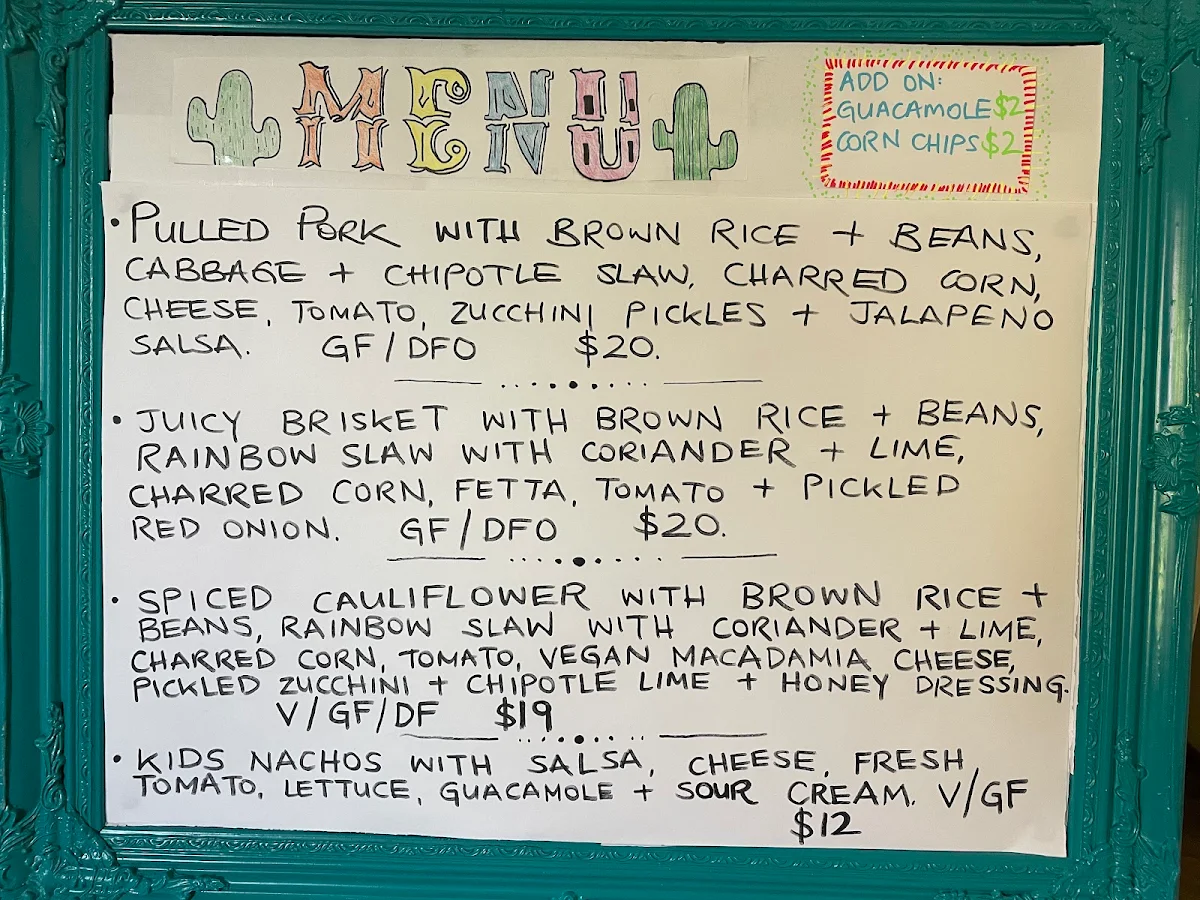 MENU
ADD ON:
GUACAMOLE $2
CORN CHIPS $2
• PULLED PORK WITH BROWN RICE + BEANS,
CABBAGE + CHIPOTLE SLAW, CHARRED CORN,
CHEESE, TOMATO, ZUCCHINI PICKLES + JALAPENO
SALSA. GF/DFO $20.
• JUICY BRISKET WITH BROWN RICE + BEANS,
RAINBOW SLAW WITH CORIANDER + LIME,
CHARRED CORN, FETTA, TOMATO + PICKLED
RED ONION. GF/DFO $20.
• SPICED CAULIFLOWER WITH BROWN RICE +
BEANS, RAINBOW SLAW WITH CORIANDER + LIME,
CHARRED CORN, TOMATO, VEGAN MACADAMIA CHEESE,
PICKLED ZUCCHINI + CHIPOTLE LIME + HONEY DRESSING.
V/GF/DF $19
• KIDS NACHOS WITH SALSA, CHEESE, FRESH
TOMATO, LETTUCE, GUACAMOLE + SOUR CREAM. V/GF
$12